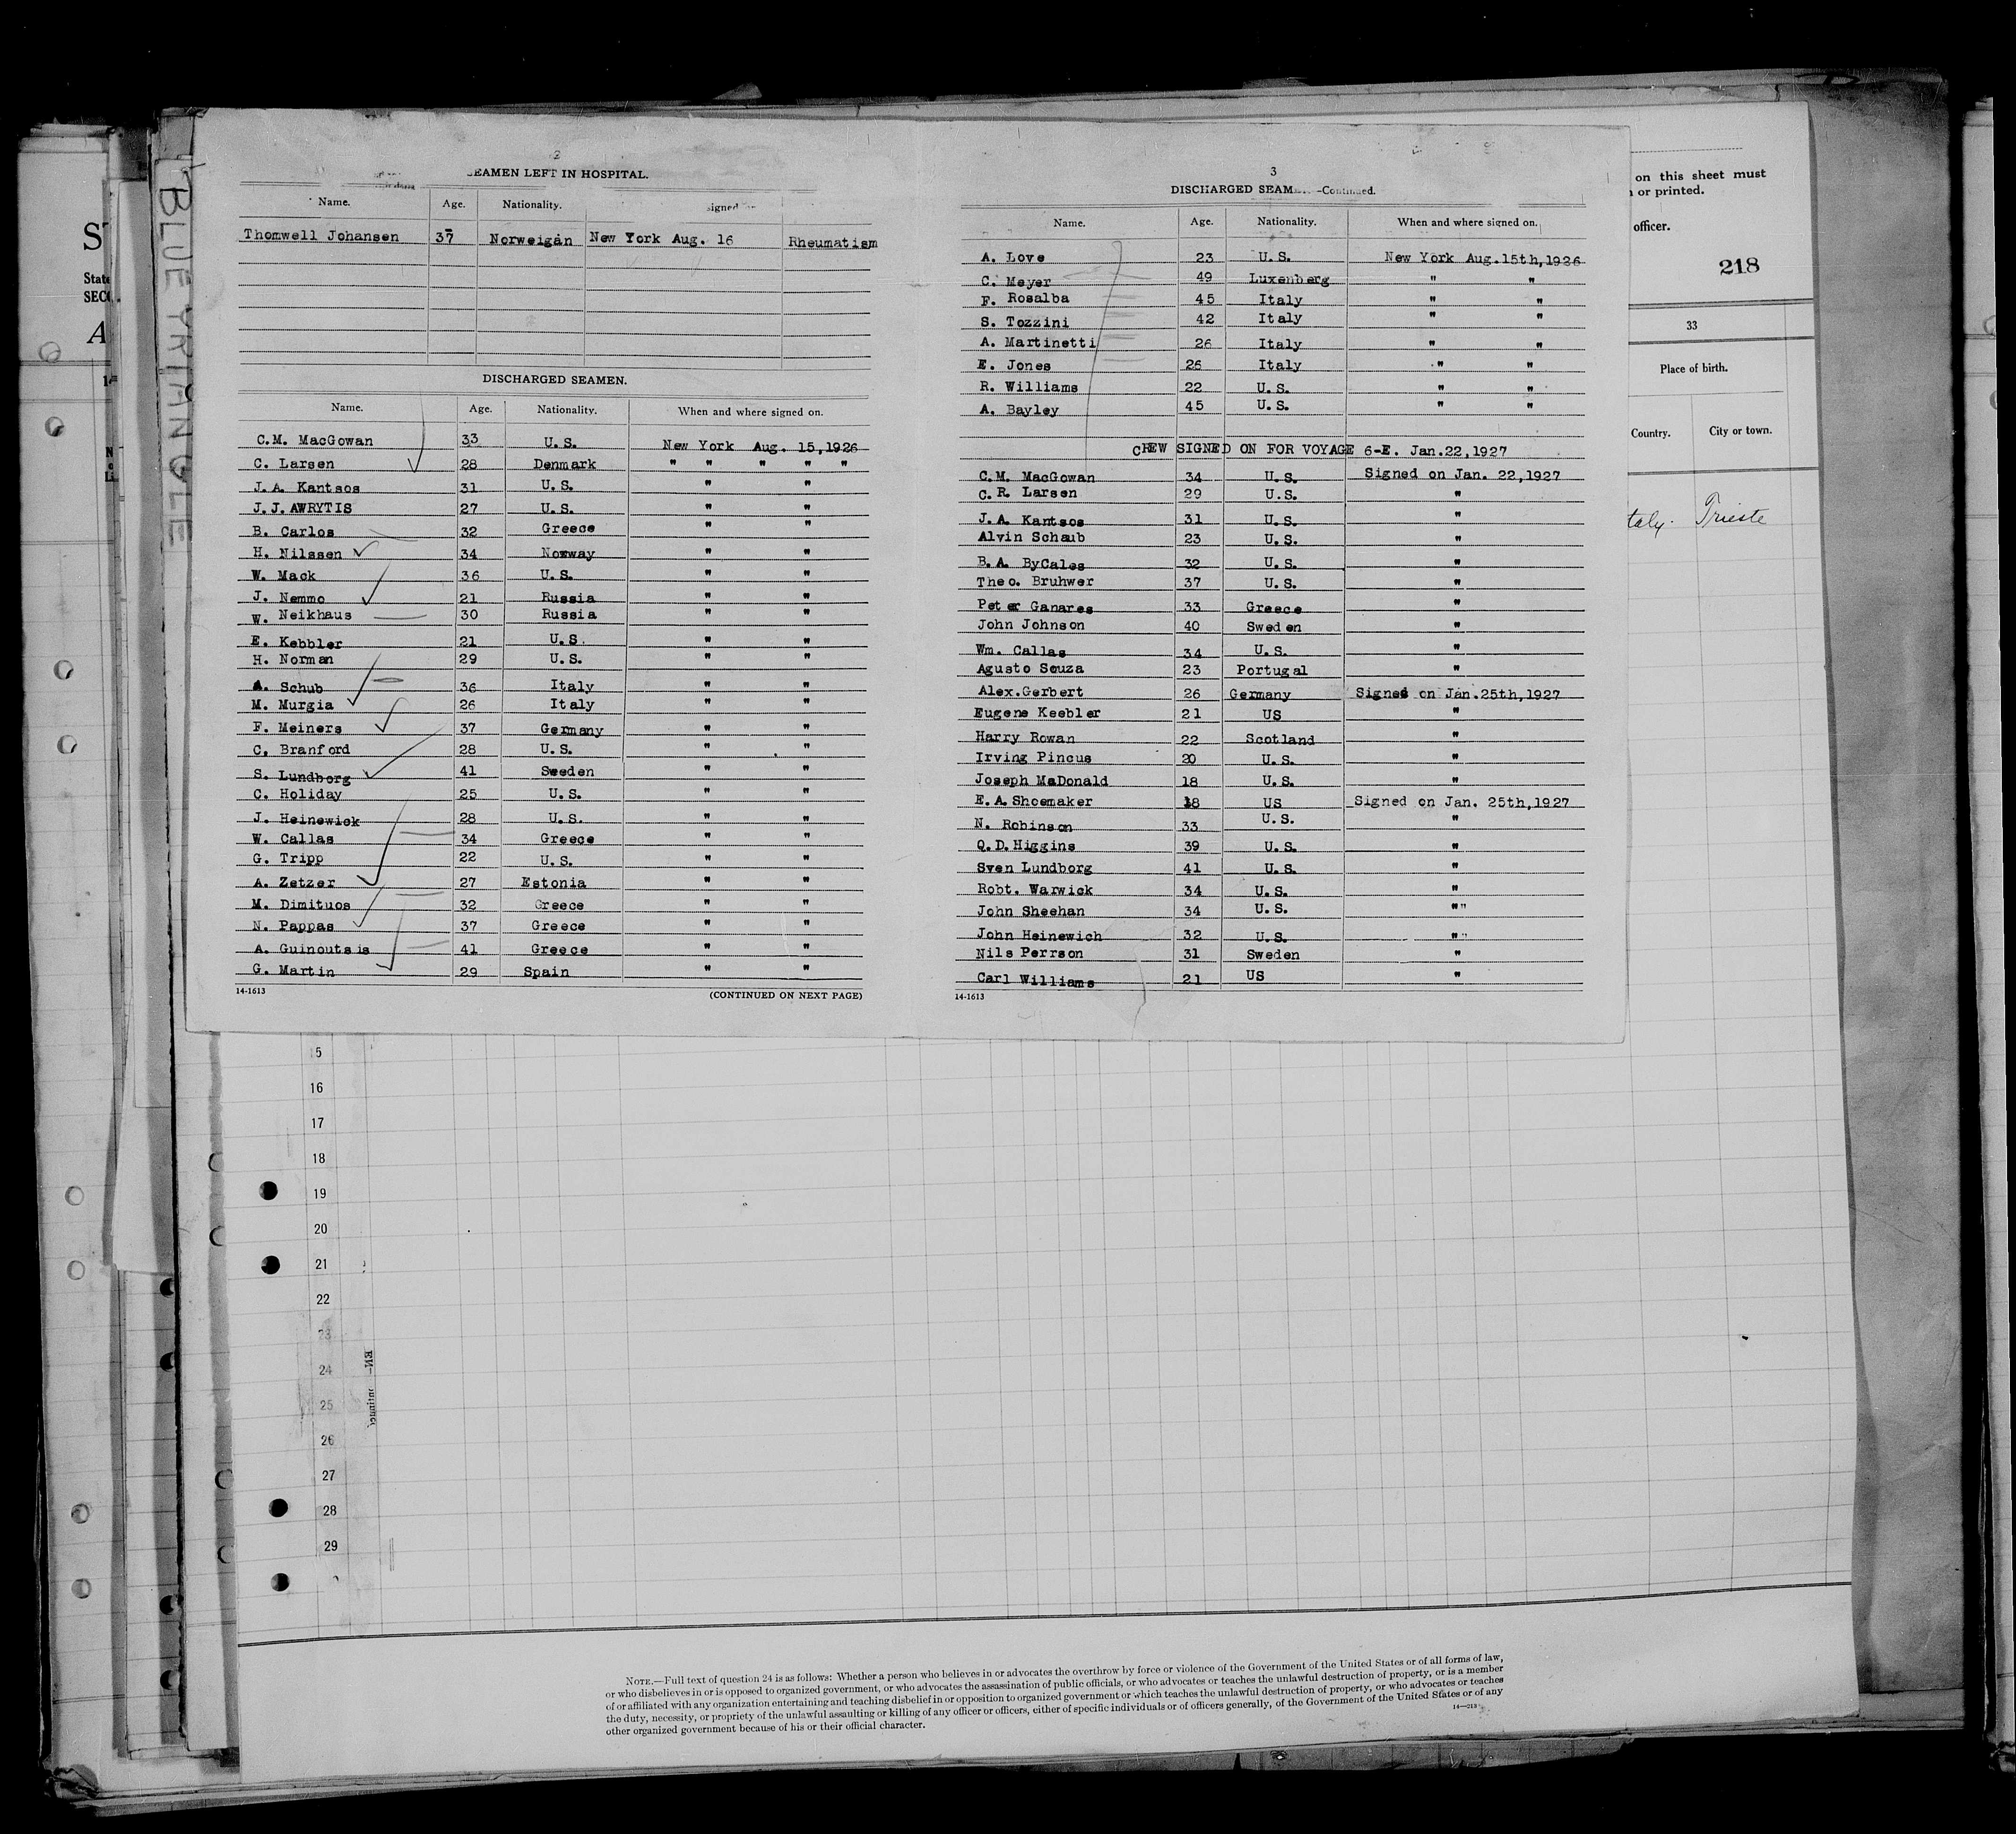 2
SEAMEN LEFT IN HOSPITAL.
Name. Age. Nationality. signed
Thomwell Johansen 37 Norweigan New York Aug. 16 Rheumatism
DISCHARGED SEAMEN.
Name. Age. Nationality. When and where signed on.
C.M. MacGowan 33 U.S. New York Aug. 15,1926
C. Larsen 28 Denmark " " " " "
J.A. Kantsos 31 U.S. " "
J.J.AWRYTIS 27 U.S. " "
B. Carlos 32 Greece " "
H. Nilssen 34 Norway " "
W. Mack 36 U.S. " "
J. Nemmo 21 Russia " "
W. Neikhaus 30 Russia " "
E. Kebbler 21 U.S. " "
H. Norman 29 U.S. " "
A. Schub 36 Italy " "
M. Murgia 26 Italy " "
F. Meiners 37 Germany " "
C. Branford 28 U.S. " "
S. Lundborg 41 Sweden " "
C. Holiday 25 U.S. " "
J. Heinewick 28 U.S. " "
W. Callas 34 Greece " "
G. Tripp 22 U.S. " "
A. Zetzer 27 Estonia " "
M. Dimituos 32 Greece " "
N. Pappas 37 Greece " "
A. Guinoutsis 41 Greece " "
G. Martin 29 Spain " "
14-1613 (CONTINUED ON NEXT PAGE)
3
DISCHARGED SEAM -Continued.
Name. Age. Nationality. When and where signed on.
A. Love 23 U.S. New York Aug.15th,1926
C. Meyer 49 Luxenberg " "
F. Rosalba 45 Italy " "
S. Tozzini 42 Italy " "
A. Martinetti 26 Italy " "
E. Jones 26 Italy " "
R. Williams 22 U.S. " "
A. Bayley 45 U.S. " "
CREW SIGNED ON FOR VOYAGE 6-E. Jan.22,1927
C.M. MacGowan 34 U.S. Signed on Jan. 22,1927
C.R. Larsen 29 U.S. "
J.A. Kantsos 31 U.S. "
Alvin Schaub 23 U.S. "
B.A. ByCales 32 U.S. "
Theo. Bruhwer 37 U.S. "
Peter Ganares 33 Greece "
John Johnson 40 Sweden "
Wm. Callas 34 U.S. "
Agusto Souza 23 Portugal "
Alex.Gerbert 26 Germany Signed on Jan.25th,1927
Eugene Keebler 21 US "
Harry Rowan 22 Scotland "
Irving Pincus 20 U.S. "
Joseph MaDonald 18 U.S. "
E.A.Shoemaker 18 US Signed on Jan. 25th,1927
N. Robinson 33 U.S. "
Q.D.Higgins 39 U.S. "
Sven Lundborg 41 U.S. "
Robt. Warwick 34 U.S. "
John Sheehan 34 U.S. ""
John Heinewich 32 U.S. ""
Nils Perrson 31 Sweden "
Carl Williams 21 US "
14-1613
on this sheet must
or printed.
officer.
218
33
Place of birth.
Country. City or town.
taly. Trieste
BLUE TRIANGLE
State
A
5
16
17
18
19
20
21
22
23
24
25
26
27
28
29
NOTE.—Full text of question 24 is as follows: Whether a person who believes in or advocates the overthrow by force or violence of the Government of the United States or of all forms of law,
or who disbelieves in or is opposed to organized government, or who advocates the assassination of public officials, or who advocates or teaches the unlawful destruction of property, or is a member
of or affiliated with any organization entertaining and teaching disbelief in or opposition to organized government or which teaches the unlawful destruction of property, or who advocates or teaches
the duty, necessity, or propriety of the unlawful assaulting or killing of any officer or officers, either of specific individuals or of officers generally, of the Government of the United States or of any
other organized government because of his or their official character.
14—213